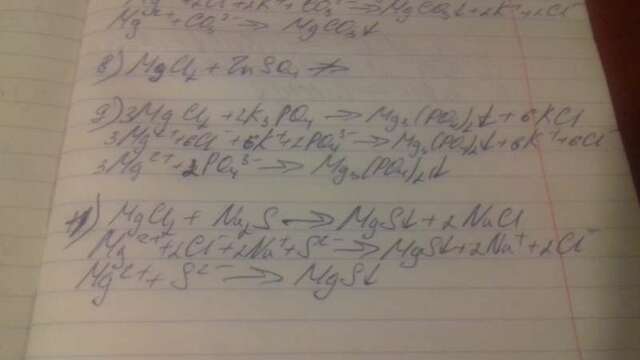 Mg²⁺+2Cl⁻+2K⁺+CO₃²⁻→MgCO₃↓+2K⁺+2Cl⁻
Mg²⁺+CO₃²⁻→MgCO₃↓
8) MgCl₂+ZnSO₄ ↛
9) 3MgCl₂+2K₃PO₄→Mg₃(PO₄)₂↓+6KCl
3Mg²⁺+6Cl⁻+6K⁺+2PO₄³⁻→Mg₃(PO₄)₂↓+6K⁺+6Cl⁻
3Mg²⁺+2PO₄³⁻→Mg₃(PO₄)₂↓
MgCl₂+Na₂S→MgS↓+2NaCl
Mg²⁺+2Cl⁻+2Na⁺+S²⁻→MgS↓+2Na⁺+2Cl⁻
Mg²⁺+S²⁻→MgS↓